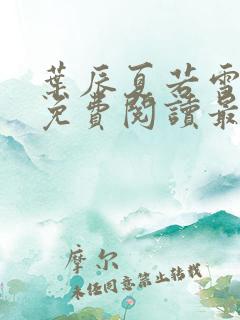 葉辰夏若雪
免費閱讀最
摩尔
未经同意禁止转载